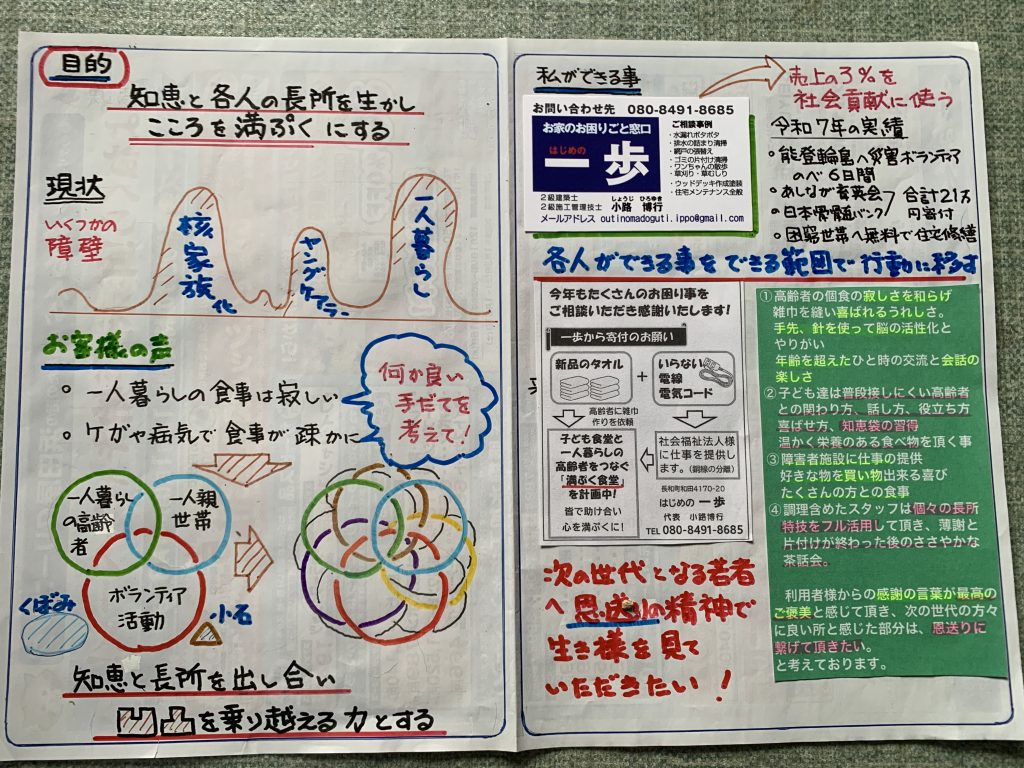 目的
知恵と各人の長所を生かし
こころを満ぷくにする
現状
いくつかの
障壁
核家族化
ヤングケアラー
一人暮らし
お客様の声
何か良い
手だてを
考えて!
。一人暮らしの食事は寂しい
。ケガや病気で食事が疎かに
一人暮らし
の高齢
者
一人親
世帯
ボランティア
活動
くぼみ
小石
知恵と長所を出し合い
凹凸を乗り越える力とする
私ができる事
売上の3%を
社会貢献に使う
お問い合わせ先 080-8491-8685
お家のお困りごと窓口
はじめの
一歩
ご相談事例
・水漏れポタポタ
・排水の詰まり清掃
・網戸の張替え
・ゴミの片付け清掃
・ワンちゃんの散歩
・草刈り・草むしり
・ウッドデッキ作成塗装
・住宅メンテナンス全般
2級建築士
2級施工管理技士
しょうじ ひろゆき
小路 博行
メールアドレス outinomadoguti.ippo@gmail.com
令和7年の実績
・能登輪島へ災害ボランティア
のべ6日間
・あしなが育英会
・日本骨髄バンク
合計21万
円寄付
・困窮世帯へ無料で住宅修繕
各人ができる事をできる範囲で行動に移す
今年もたくさんのお困り事を
ご相談いただき感謝いたします!
一歩から寄付のお願い
新品のタオル
+
いらない
電線
電気コード
高齢者に雑巾
作りを依頼
子ども食堂と
一人暮らしの
高齢者をつなぐ
「満ぷく食堂」
を計画中!
皆で助け合い
心を満ぷくに!
社会福祉法人様
に仕事を提供し
ます。(銅線の分離)
長和町和田4170-20
はじめの 一歩
代表 小路博行
TEL 080-8491-8685
①高齢者の個食の寂しさを和らげ
雑巾を縫い喜ばれるうれしさ。
手先、針を使って脳の活性化と
やりがい
年齢を超えたひと時の交流と会話の
楽しさ
②子ども達は普段接しにくい高齢者
との関わり方、話し方、役立ち方
喜ばせ方、知恵袋の習得
温かく栄養のある食べ物を頂く事
③障害者施設に仕事の提供
好きな物を買い物出来る喜び
たくさんの方との食事
④調理含めたスタッフは個々の長所
特技をフル活用して頂き、薄謝と
片付けが終わった後のささやかな
茶話会。
利用者様からの感謝の言葉が最高の
ご褒美と感じて頂き、次の世代の方々
に良い所と感じた部分は、恩送りに
繋げて頂きたい。
と考えております。
次の世代となる若者
へ恩送りの精神で
生き様を見て
いただきたい!